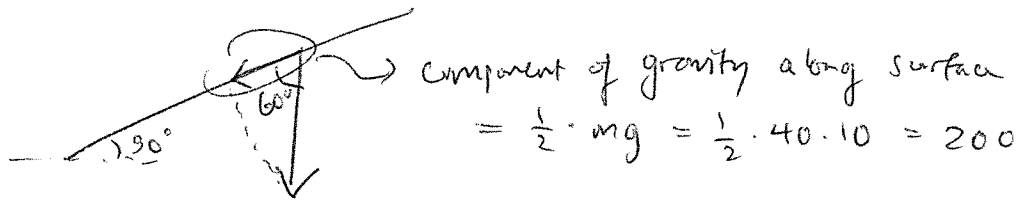 component of gravity along surface
60°
30°
= 1/2 · mg = 1/2 · 40 · 10 = 200